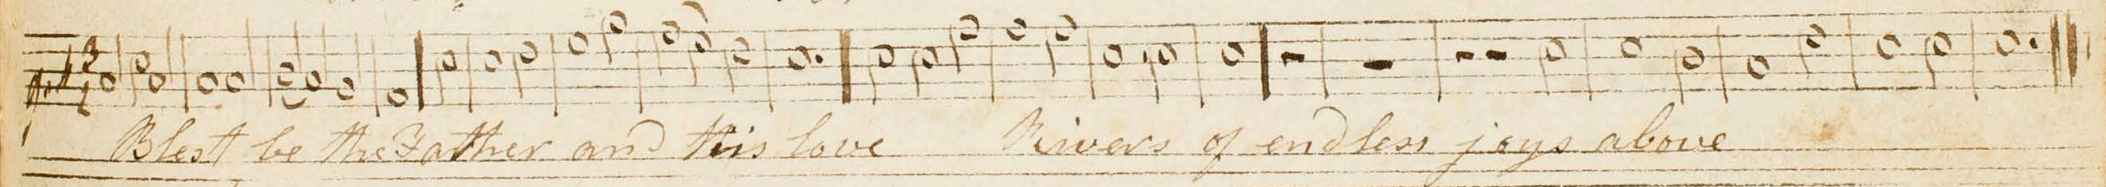 Blest be the Father and his love Rivers of endless joys above